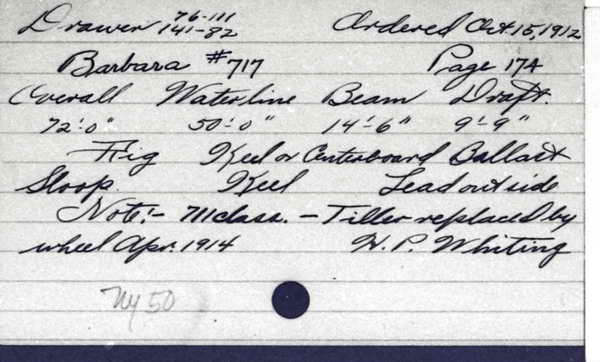 Drawer 76-111 141-82 Ordered Oct. 15, 1912
Barbara #717 Page 174
Overall Waterline Beam Draft.
72'-0" 50'-0" 14'-6" 9'-9"
Rig Keel or Centerboard Ballast
Sloop. Keel Lead outside
Note:- 711 class. - Tiller replaced by
wheel Apr. 1914 H. P. Whiting
NY 50